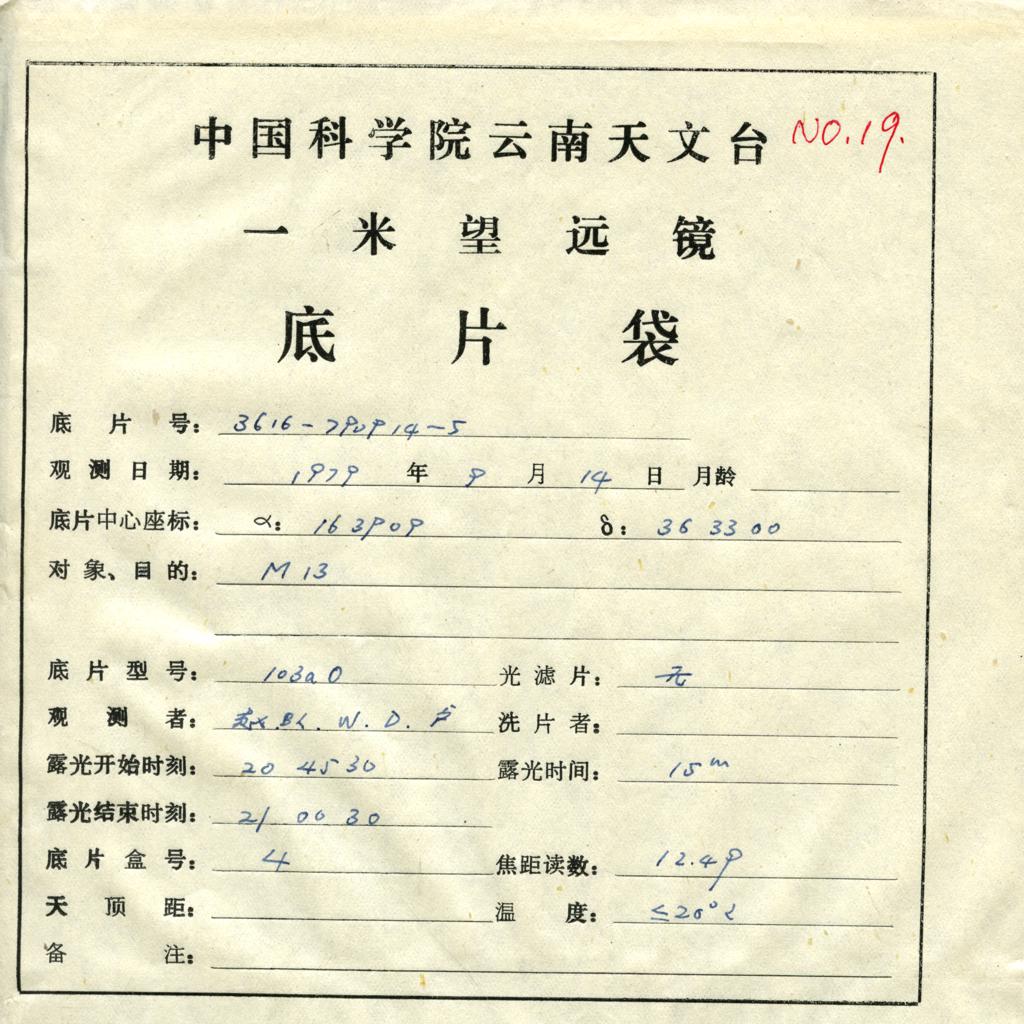 中国科学院云南天文台 NO.19.
一米望远镜
底片袋
底片号: 3616-790914-5
观测日期: 1979 年 9 月 14 日 月龄
底片中心座标: α: 16 39 09 δ: 36 33 00
对象、目的: M 13
底片型号: 103aO 光滤片: 无
观测者: W. D. 卢 洗片者:
露光开始时刻: 20 45 30 露光时间: 15m
露光结束时刻: 21 00 30
底片盒号: 4 焦距读数: 12.49
天顶距: 温度: ≤20°
备注: